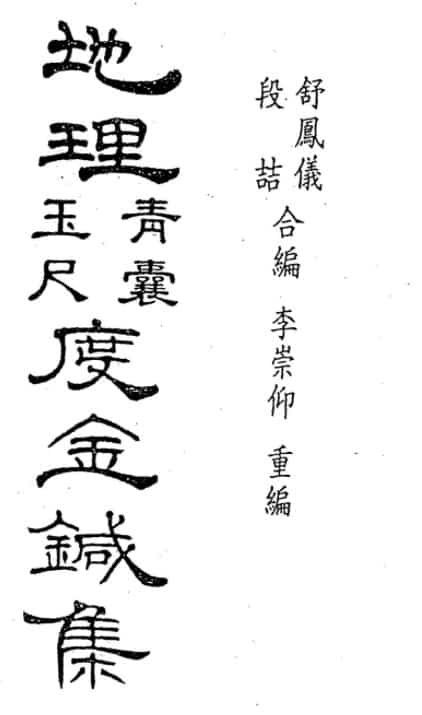 舒鳳儀
段喆
合編 李崇仰 重編
地理
青囊
玉尺
度金鍼集